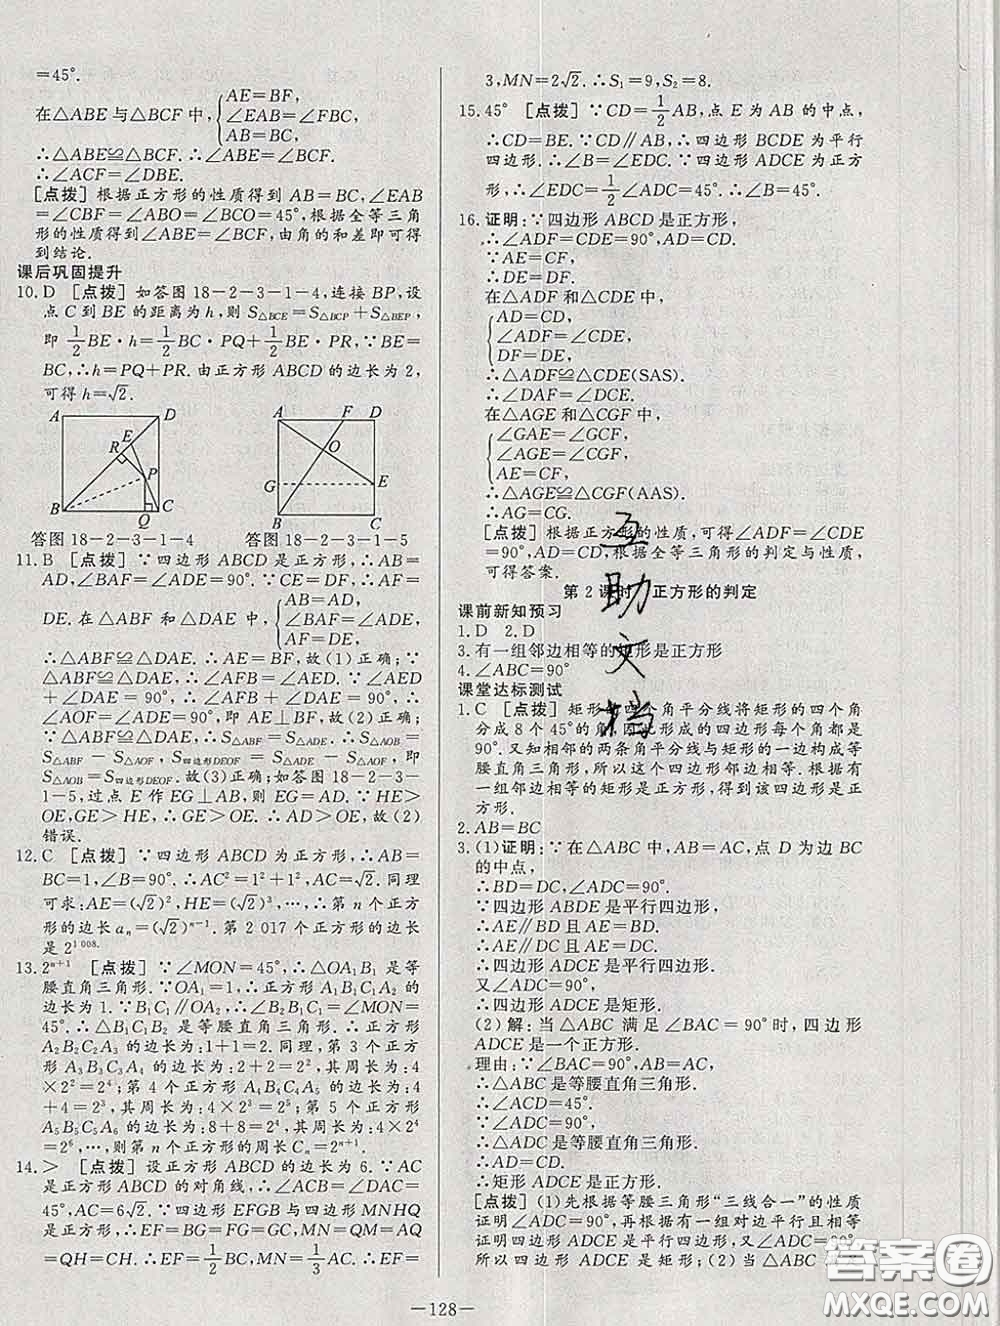 =45°.
在△ABE与△BCF中,{AE=BF,
∠EAB=∠FBC,
AB=BC,
∴△ABE≌△BCF.∴∠ABE=∠BCF.
∴∠ACF=∠DBE.
[点拨] 根据正方形的性质得到 AB=BC,∠EAB
=∠CBF=∠ABO=∠BCO=45°,根据全等三角
形的性质得到∠ABE=∠BCF,由角的和差即可得
到结论.
课后巩固提升
10.D [点拨] 如答图 18-2-3-1-4,连接 BP,设
点 C 到 BE 的距离为 h,则 S△BCE=S△BCP+S△BEP,
即 1/2 BE·h=1/2 BC·PQ+1/2 BE·PR,∵BE=
BC,∴h=PQ+PR.由正方形 ABCD 的边长为 2,
可得 h=√2.
A D
E
R
P
B Q C
A F D
O
G E
B C
答图 18-2-3-1-4 答图 18-2-3-1-5
11.B [点拨] ∵四边形 ABCD 是正方形,∴AB=
AD,∠BAF=∠ADE=90°.∵CE=DF,∴AF=
DE.在△ABF 和△DAE 中,{AB=AD,
∠BAF=∠ADE,
AF=DE,
∴△ABF≌△DAE.∴AE=BF,故(1)正确;∵
△ABF≌△DAE,∴∠ABF=∠DAE.∵∠DAE+
∠DEA=90°,∴∠ABF+∠DAE=90°,∴
∠AOF=∠ADE=90°,即 AE⊥BF,故(2)正确;
∵△ABF≌△DAE,∴S△ABF=S△ADE.∵S△AOB=
S△ABF-S△AOF,S四边形DEOF=S△ADE-S△AOF,即
S△AOB=S四边形DEOF.故(3)正确;如答图 18-2-3-
1-5,过点 E 作 EG⊥AB,则 EG=AD.∵HE>
OE,GE>HE,∴GE>OE.∴AD>OE,故(2)
错误.
12.C [点拨] ∵四边形 ABCD 为正方形,∴AB=
BC=1,∠B=90°.∴AC²=1²+1²,AC=√2.同理
可求:AE=(√2)²,HE=(√2)³,…,∴第 n 个正方
形的边长 aₙ=(√2)ⁿ⁻¹.第 2 017 个正方形的边长
是 2¹ ⁰⁰⁸.
13.2ⁿ⁺¹ [点拨] ∵∠MON=45°,∴△OA₁B₁ 是等
腰直角三角形.∵OA₁=1,∴正方形A₁B₁C₁A₂的
边长为 1.∵B₁C₁∥OA₂,∴∠B₂B₁C₁=∠MON=
45°.∴△B₁C₁B₂ 是等腰直角三角形.∴正方形
A₂B₂C₂A₃ 的边长为:1+1=2.同理,第 3 个正方
形 A₃B₃C₃A₄ 的边长为:2+2=2²,其周长为:
4×2²=2⁴;第 4 个正方形 A₄B₄C₄A₅ 的边长为:
4+4=2³,其周长为:4×2³=2⁵;第 5 个正方形
A₅B₅C₅A₆ 的边长为:8+8=2⁴,其周长为:4×2⁴=
2⁶,…,则第 n 个正方形的周长 Cₙ=2ⁿ⁺¹.
14.> [点拨] 设正方形 ABCD 的边长为 6.∵AC
是正方形 ABCD 的对角线,∴∠ACB=∠DAC=
45°,AC=6√2.∵四边形 EFGB 与四边形 MNHQ
是正方形,∴EF=BG=FG=GC,MN=QM=AQ
=QH=CH.∴EF=1/2 BC,MN=1/3 AC.∴EF=
3,MN=2√2.∴S₁=9,S₂=8.
15.45° [点拨] ∵CD=1/2 AB,点 E 为 AB 的中点,
∴CD=BE.∵CD∥AB,∴四边形 BCDE 为平行
四边形.∴∠B=∠EDC.∵四边形 ADCE 为正方
形,∴∠EDC=1/2∠ADC=45°.∴∠B=45°.
16.证明:∵四边形 ABCD 是正方形,
∴∠ADF=∠CDE=90°,AD=CD.
∵AE=CF,
∴DE=DF.
在△ADF 和△CDE 中,
{AD=CD,
∠ADF=∠CDE,
DF=DE,
∴△ADF≌△CDE(SAS).
∴∠DAF=∠DCE.
在△AGE 和△CGF 中,
{∠GAE=∠GCF,
∠AGE=∠CGF,
AE=CF,
∴△AGE≌△CGF(AAS).
∴AG=CG.
[点拨] 根据正方形的性质,可得∠ADF=∠CDE
=90°,AD=CD,根据全等三角形的判定与性质,
可得答案.
第 2 课时 正方形的判定
课前新知预习
1.D 2.D
3.有一组邻边相等的矩形是正方形
4.∠ABC=90°
课堂达标测试
1.C [点拨] 矩形的四个角平分线将矩形的四个角
分成 8 个 45°的角,因此形成的四边形每个角都是
90°.又知相邻的两条角平分线与矩形的一边构成等
腰直角三角形,所以这个四边形邻边相等.根据有
一组邻边相等的矩形是正方形,得到该四边形是正
方形.
2.AB=BC
3.(1)证明:∵在△ABC 中,AB=AC,点 D 为边 BC
的中点,
∴BD=DC,∠ADC=90°.
∵四边形 ABDE 是平行四边形,
∴AE∥BD 且 AE=BD.
∴AE∥DC 且 AE=DC.
∴四边形 ADCE 是平行四边形.
又∠ADC=90°,
∴四边形 ADCE 是矩形.
(2)解:当△ABC 满足∠BAC=90°时,四边形
ADCE 是一个正方形.
理由:∵∠BAC=90°,AB=AC,
∴△ABC 是等腰直角三角形.
∴∠ACD=45°.
∵∠ADC=90°,
∴△ADC 是等腰直角三角形.
∴AD=CD.
∴矩形 ADCE 是正方形.
[点拨] (1)先根据等腰三角形“三线合一”的性质
证明∠ADC=90°,再根据有一组对边平行且相等
证明四边形 ADCE 是平行四边形,又∠ADC=90°
所以四边形 ADCE 是矩形;(2)
互助文档
答案圈
MXQE.COM
—128—